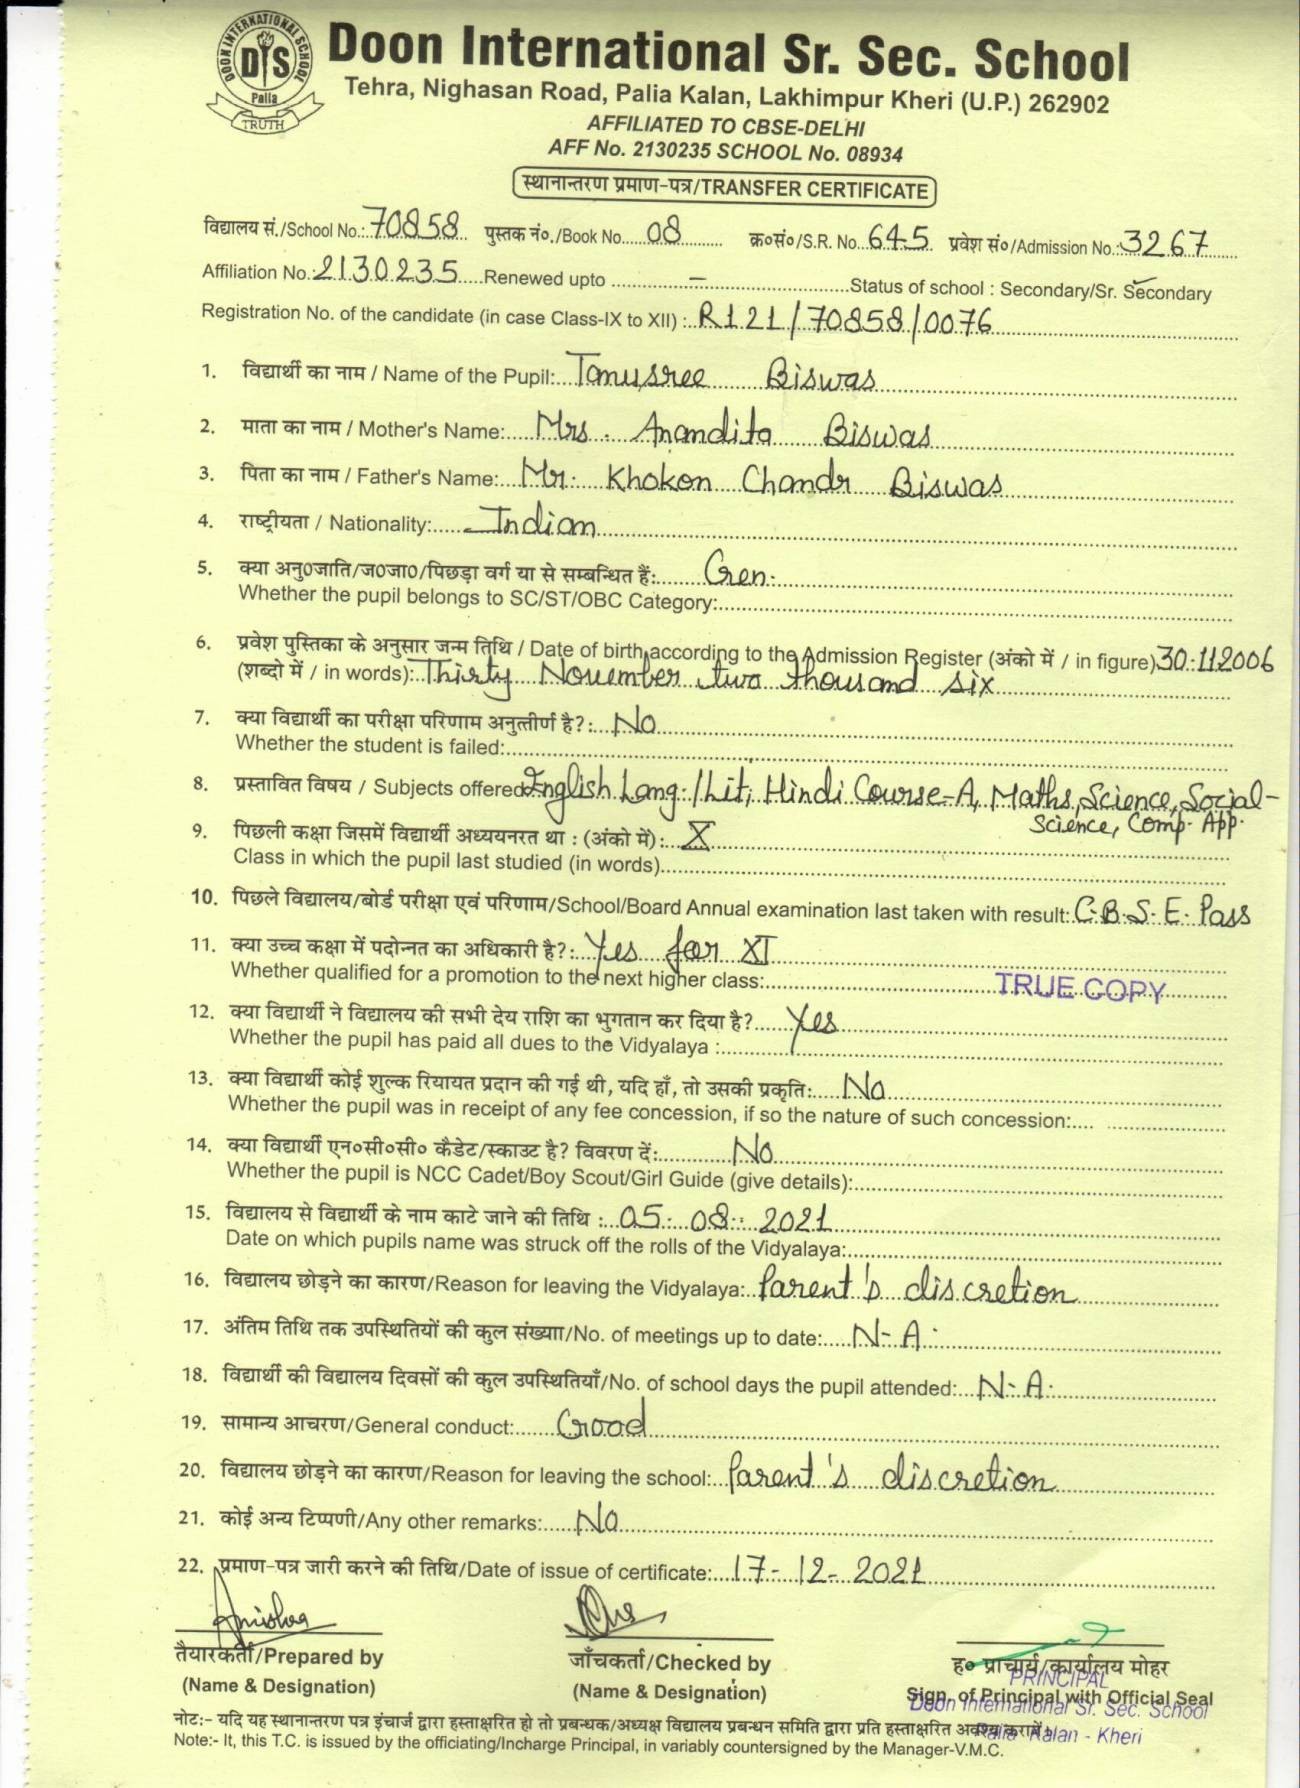 DOON INTERNATIONAL SCHOOL
DIS
Palia
TRUTH
Doon International Sr. Sec. School
Tehra, Nighasan Road, Palia Kalan, Lakhimpur Kheri (U.P.) 262902
AFFILIATED TO CBSE-DELHI
AFF No. 2130235 SCHOOL No. 08934
स्थानान्तरण प्रमाण-पत्र/TRANSFER CERTIFICATE
विद्यालय सं./School No.: 70858 पुस्तक नं०./Book No. 08 क्र०सं०/S.R. No. 645 प्रवेश सं०/Admission No.: 3267
Affiliation No. 2130235 Renewed upto – Status of school : Secondary/Sr. Secondary
Registration No. of the candidate (in case Class-IX to XII) : R121/70858/0076
1. विद्यार्थी का नाम / Name of the Pupil: Tanusree Biswas
2. माता का नाम / Mother's Name: Mrs. Anandita Biswas
3. पिता का नाम / Father's Name: Mr. Khokon Chandr Biswas
4. राष्ट्रीयता / Nationality: Indian
5. क्या अनु०जाति/ज०जा०/पिछड़ा वर्ग या से सम्बन्धित हैं: Gen.
Whether the pupil belongs to SC/ST/OBC Category:
6. प्रवेश पुस्तिका के अनुसार जन्म तिथि / Date of birth according to the Admission Register (अंको में / in figure) 30.112006
(शब्दो में / in words): Thirty November two thousand six
7. क्या विद्यार्थी का परीक्षा परिणाम अनुत्तीर्ण है?: No
Whether the student is failed:
8. प्रस्तावित विषय / Subjects offered: English Lang./Lit, Hindi Course-A, Maths, Science, Social-
Science, Comp. App.
9. पिछली कक्षा जिसमें विद्यार्थी अध्ययनरत था : (अंको में): X
Class in which the pupil last studied (in words)
10. पिछले विद्यालय/बोर्ड परीक्षा एवं परिणाम/School/Board Annual examination last taken with result: C.B.S.E. Pass
11. क्या उच्च कक्षा में पदोन्नत का अधिकारी है?: Yes for XI
Whether qualified for a promotion to the next higher class:
TRUE COPY
12. क्या विद्यार्थी ने विद्यालय की सभी देय राशि का भुगतान कर दिया है? Yes
Whether the pupil has paid all dues to the Vidyalaya :
13. क्या विद्यार्थी कोई शुल्क रियायत प्रदान की गई थी, यदि हाँ, तो उसकी प्रकृति: No
Whether the pupil was in receipt of any fee concession, if so the nature of such concession:
14. क्या विद्यार्थी एन०सी०सी० कैडेट/स्काउट है? विवरण दें: No
Whether the pupil is NCC Cadet/Boy Scout/Girl Guide (give details):
15. विद्यालय से विद्यार्थी के नाम काटे जाने की तिथि : 05. 08. 2021
Date on which pupils name was struck off the rolls of the Vidyalaya:
16. विद्यालय छोड़ने का कारण/Reason for leaving the Vidyalaya: Parent's discretion
17. अंतिम तिथि तक उपस्थितियों की कुल संख्याा/No. of meetings up to date: N-A.
18. विद्यार्थी की विद्यालय दिवसों की कुल उपस्थितियाँ/No. of school days the pupil attended: N-A.
19. सामान्य आचरण/General conduct: Good
20. विद्यालय छोड़ने का कारण/Reason for leaving the school: Parent's discretion
21. कोई अन्य टिप्पणी/Any other remarks: No
22. प्रमाण-पत्र जारी करने की तिथि/Date of issue of certificate: 17-12-2021
तैयारकर्ता/Prepared by जाँचकर्ता/Checked by ह० प्राचार्य/कार्यालय मोहर
PRINCIPAL
(Name & Designation) (Name & Designation) Sign. of Principal with Official Seal
Doon International Sr. Sec. School
Palia Kalan - Kheri
नोटः- यदि यह स्थानान्तरण पत्र इंचार्ज द्वारा हस्ताक्षरित हो तो प्रबन्धक/अध्यक्ष विद्यालय प्रबन्धन समिति द्वारा प्रति हस्ताक्षरित अवश्य करायें।
Note:- It, this T.C. is issued by the officiating/Incharge Principal, in variably countersigned by the Manager-V.M.C.